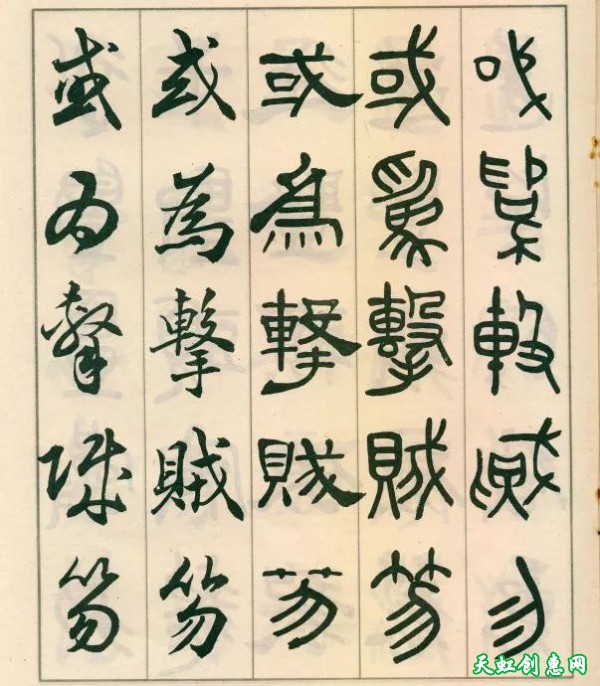 或為擊賊笏
或為擊賊笏
或為擊賊笏
或為擊賊笏
或為擊賊笏
天虹创惠网